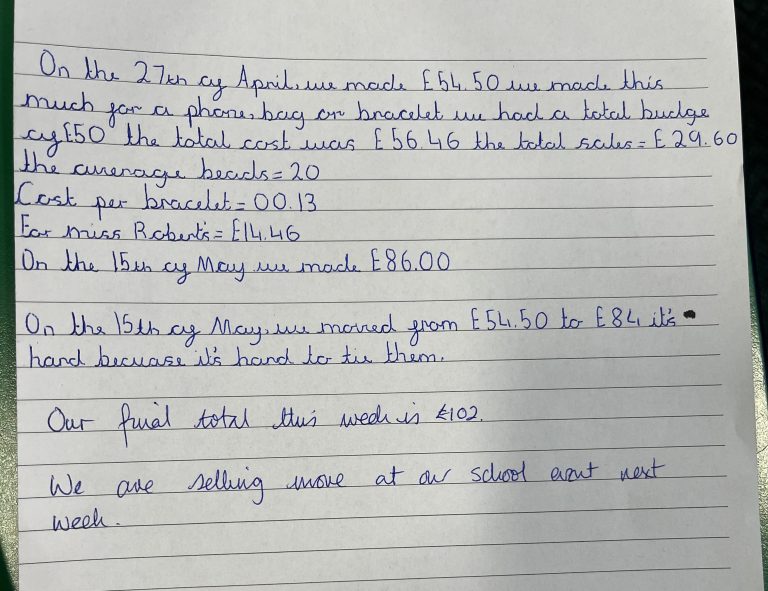 On the 27th of April, we made £54.50 we made this
much for a phone, bag or bracelet we had a total budge
of £50 the total cost was £56.46 the total sales = £29.60
the average beads = 20
Cost per bracelet = 00.13
For miss Robert's = £14.46
On the 15th of May we made £86.00
On the 15th of May, we moved from £54.50 to £84 it's
hard becuase it's hard to tie them.
Our final total this week is £102.
We are selling more at our school event next
week.